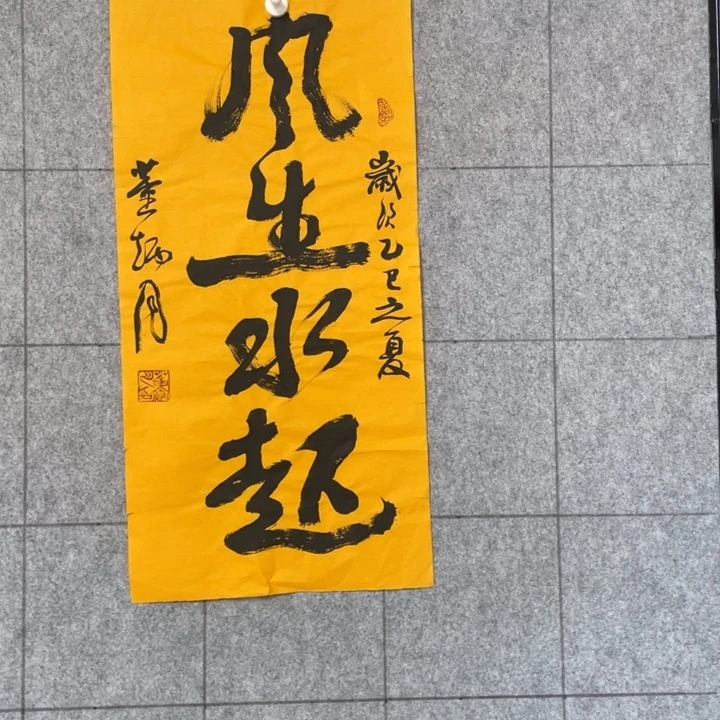 歲次乙巳之夏
風生水起
董炳月